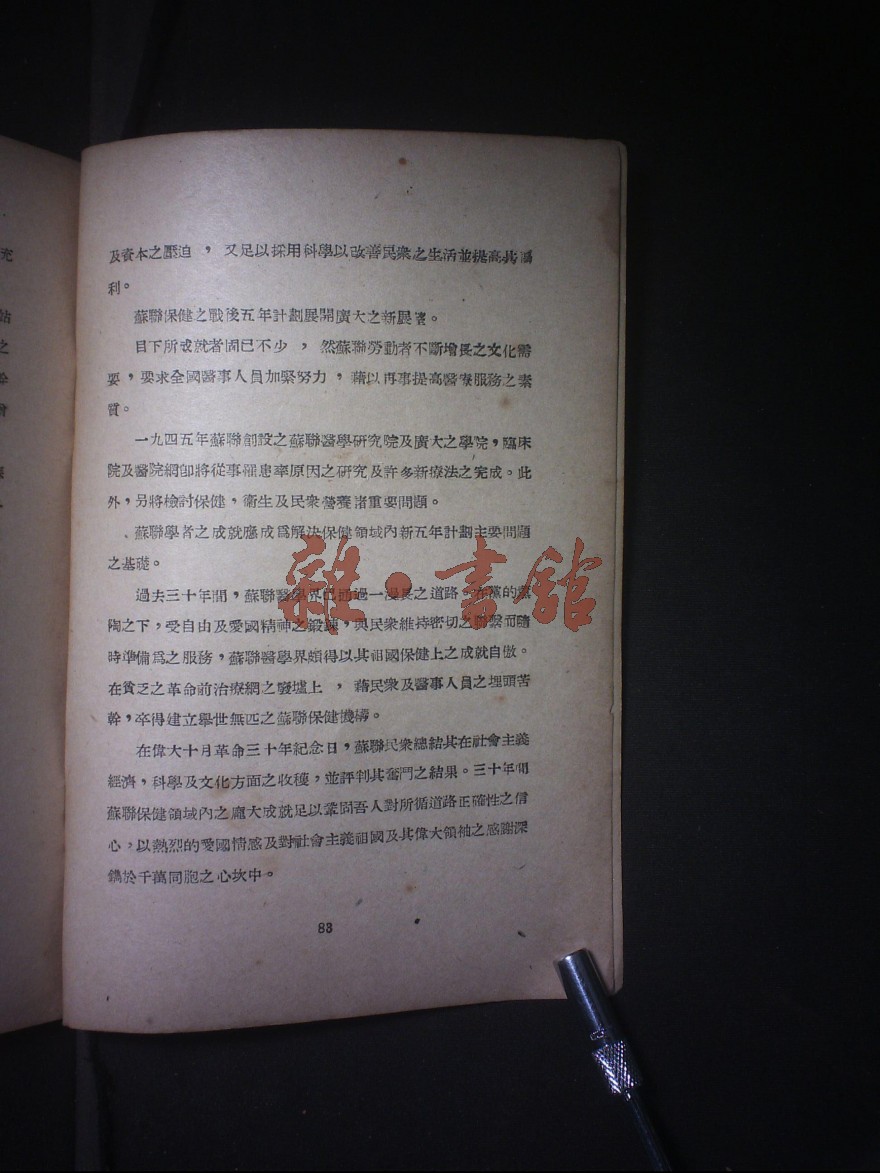 充
站
之
幹
會
及資本之壓迫，又足以採用科學以改善民衆之生活並提高其福
利。
蘇聯保健之戰後五年計劃展開廣大之新展望。
目下所成就者固已不少，然蘇聯勞動者不斷增長之文化需
要，要求全國醫事人員加緊努力，藉以再事提高醫療服務之素
質。
一九四五年蘇聯創設之蘇聯醫學研究院及廣大之學院，臨床
院及醫院網即將從事罹患率原因之研究及許多新療法之完成。此
外，另將檢討保健，衛生及民衆營養諸重要問題。
蘇聯學者之成就應成爲解決保健領域內新五年計劃主要問題
之基礎。
過去三十年間，蘇聯醫學界已通過一漫長之道路。在黨的薰
陶之下，受自由及愛國精神之鍛鍊，與民衆維持密切之聯繫而隨
時準備爲之服務，蘇聯醫學界頗得以其祖國保健上之成就自傲。
在貧乏之革命前治療網之廢墟上，藉民衆及醫事人員之埋頭苦
幹，卒得建立舉世無匹之蘇聯保健機構。
在偉大十月革命三十年紀念日，蘇聯民衆總結其在社會主義
經濟，科學及文化方面之收穫，並評判其奮鬥之結果。三十年間
蘇聯保健領域內之龐大成就足以鞏固吾人對所循道路正確性之信
心，以熱烈的愛國情感及對社會主義祖國及其偉大領袖之感謝深
鐫於千萬同胞之心坎中。
83
雜·書館